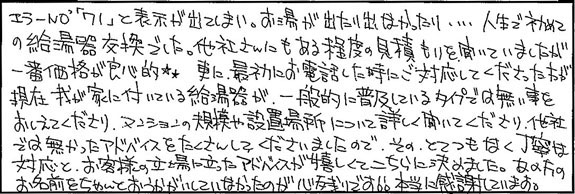 エラーNO「71」と表示が出てしまい。お湯が出たり出なかったり…、人生で初めて
の給湯器交換でした。他社さんにもある程度の見積もりを聞いていましたが
一番価格が良心的★★ 更に、最初にお電話した時にご対応してくださった方が
現在我が家に付いている給湯器が、一般的に普及しているタイプでは無い事を
おしえてくださり、マンションの規模や設置場所について詳しく聞いてくださり、他社
では無かったアドバイスをたくさんしてくださいましたので、その、とてつもなく丁寧な
対応と、お客様の立場に立ったアドバイスが嬉しくてこちらに決めました。あなたの
お名前をちゃんとおうかがいしていなかったのが心残りですが本当に感謝しています。